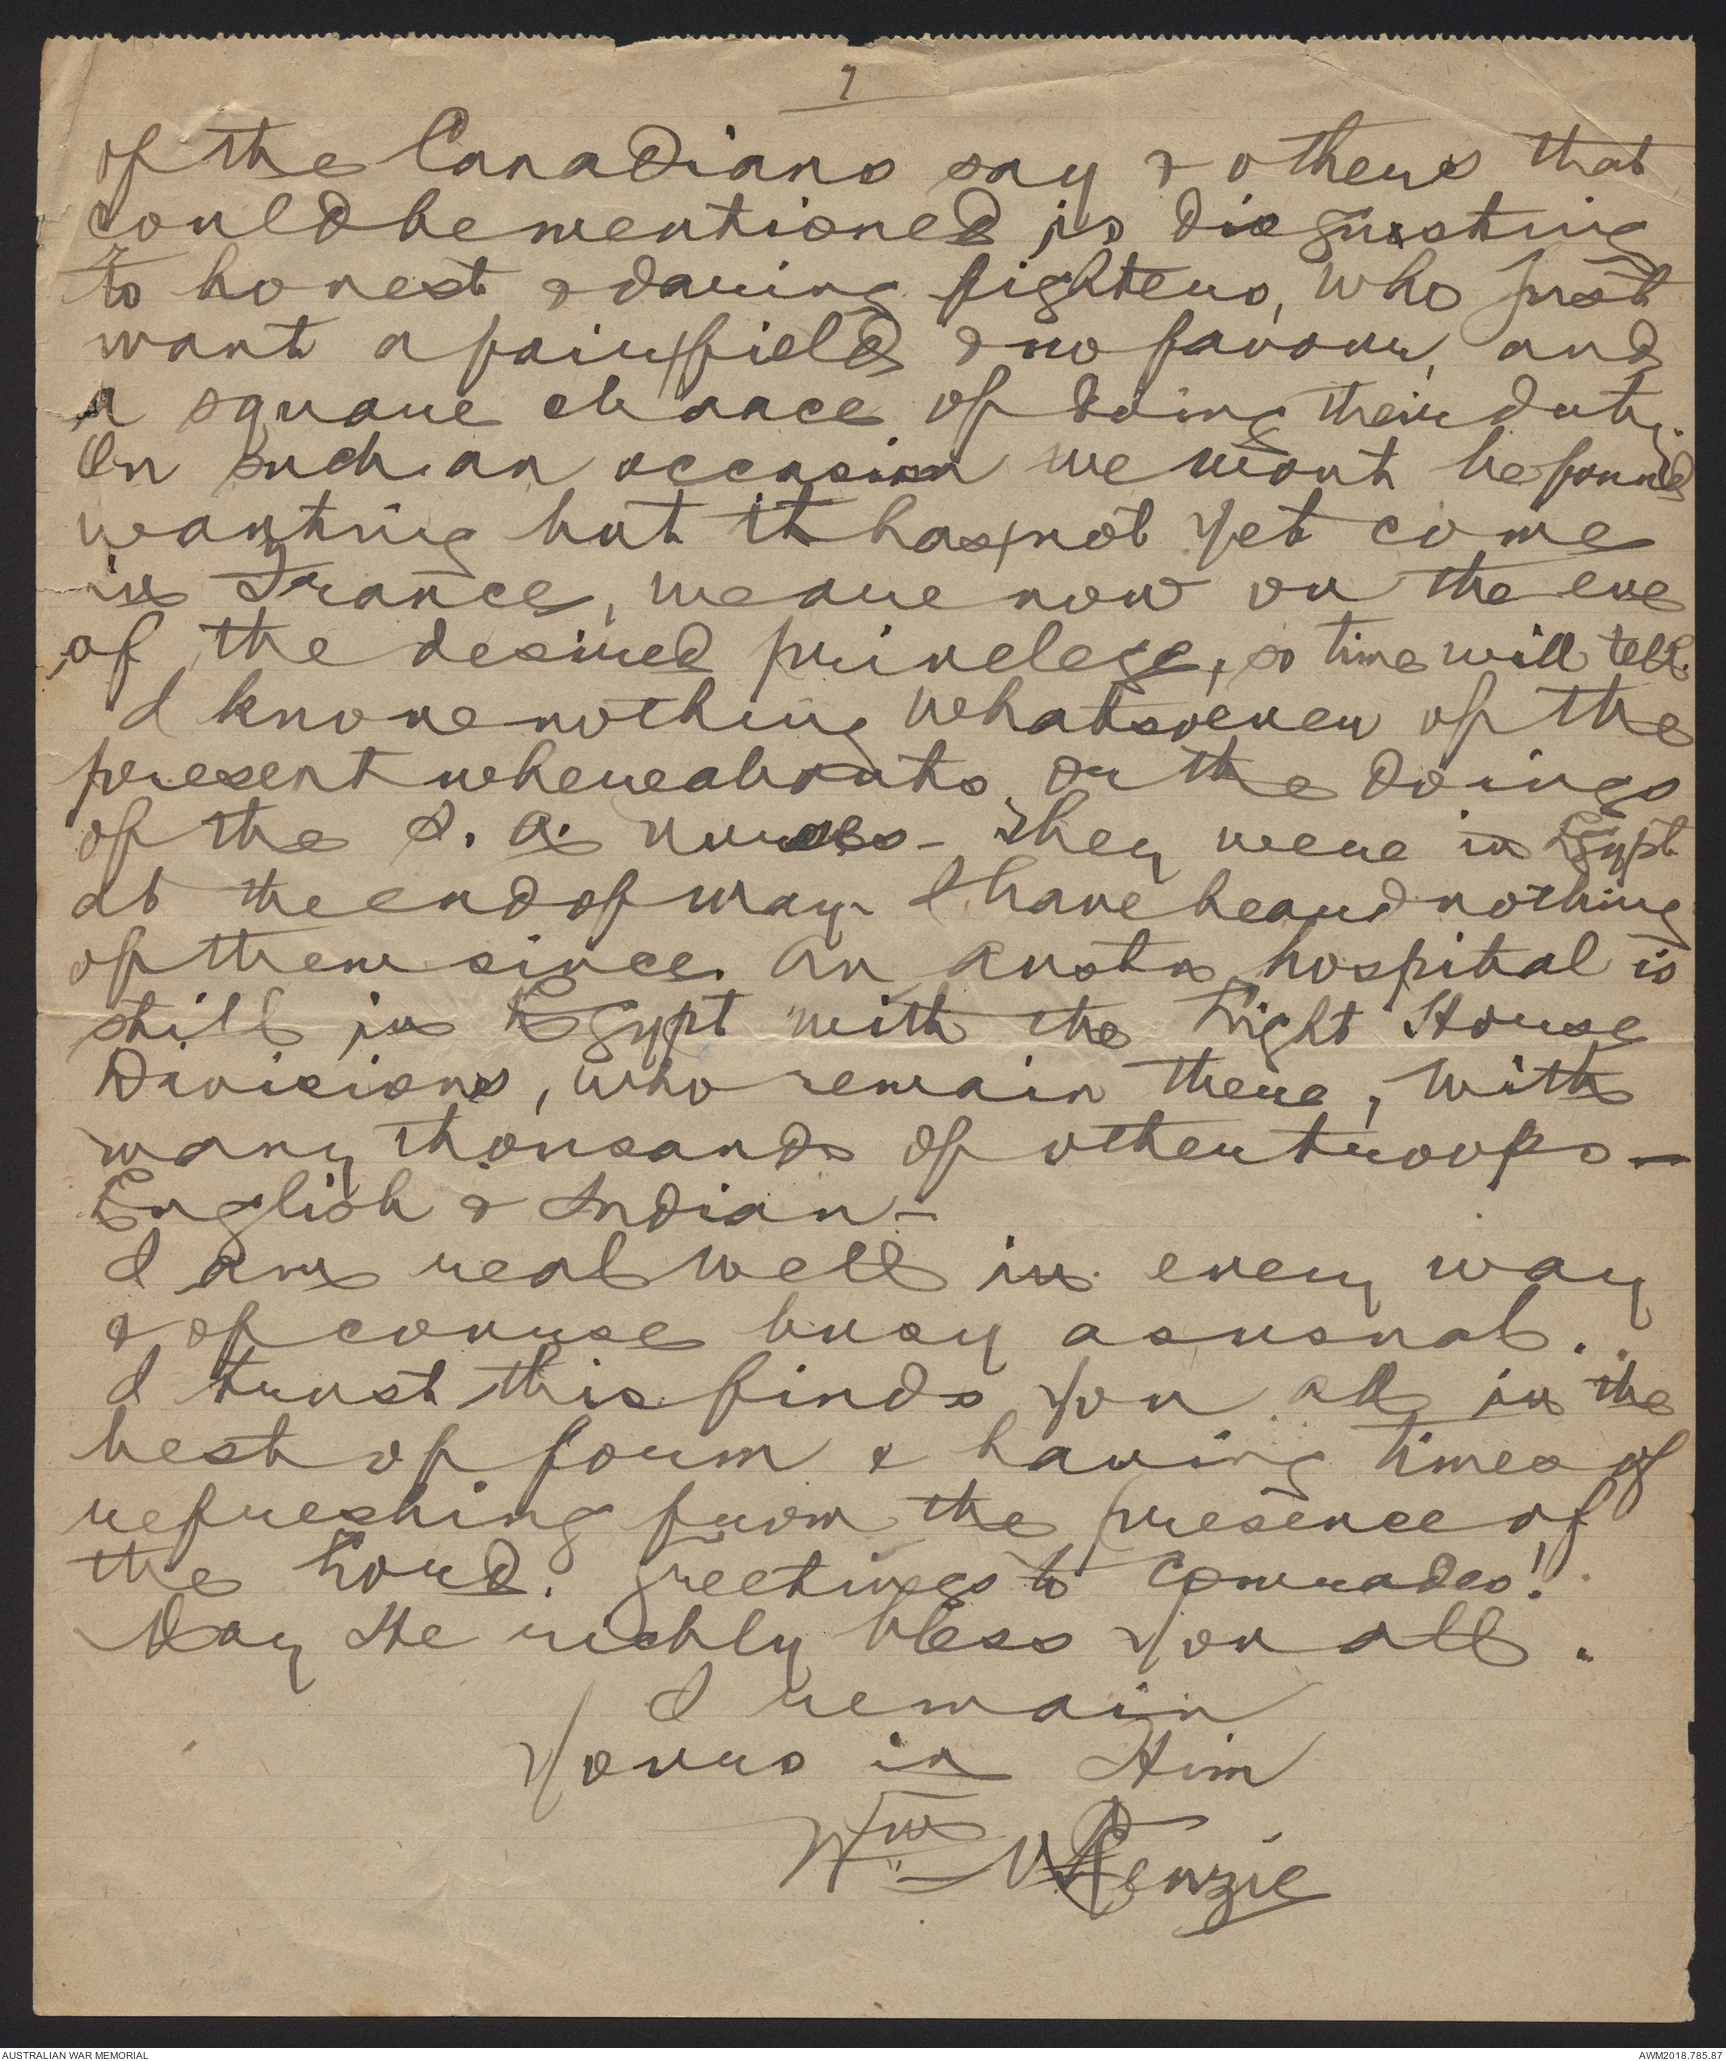 7
of the Canadians say & others that
could be mentioned is disgusting
to honest & daring fighters, who just
want a fair field & no favour, and
a square chance of doing their duty.
On such an occasion we wont be found
wanting but it has not yet come
in France, we are now on the eve
of the desired privelege, so time will tell.
I know nothing whatsoever of the
present whereabouts or the doings
of the S. A. nurses - They were in Egypt
at the end of May - I have heard nothing
of them since. An Austn hospital is
still in Egypt with the Light Horse
Divisions, who remain there, with
many thousands of other troops -
English & Indian -
I am real well in every way
& of course busy as usual.
I trust this finds you all in the
best of form & having times of
refreshing from the presence of
the Lord. Greetings to Comrades!
May He richly bless you all.
I remain
Yours in Him
Wm McKenzie
AUSTRALIAN WAR MEMORIAL
AWM2018.785.87